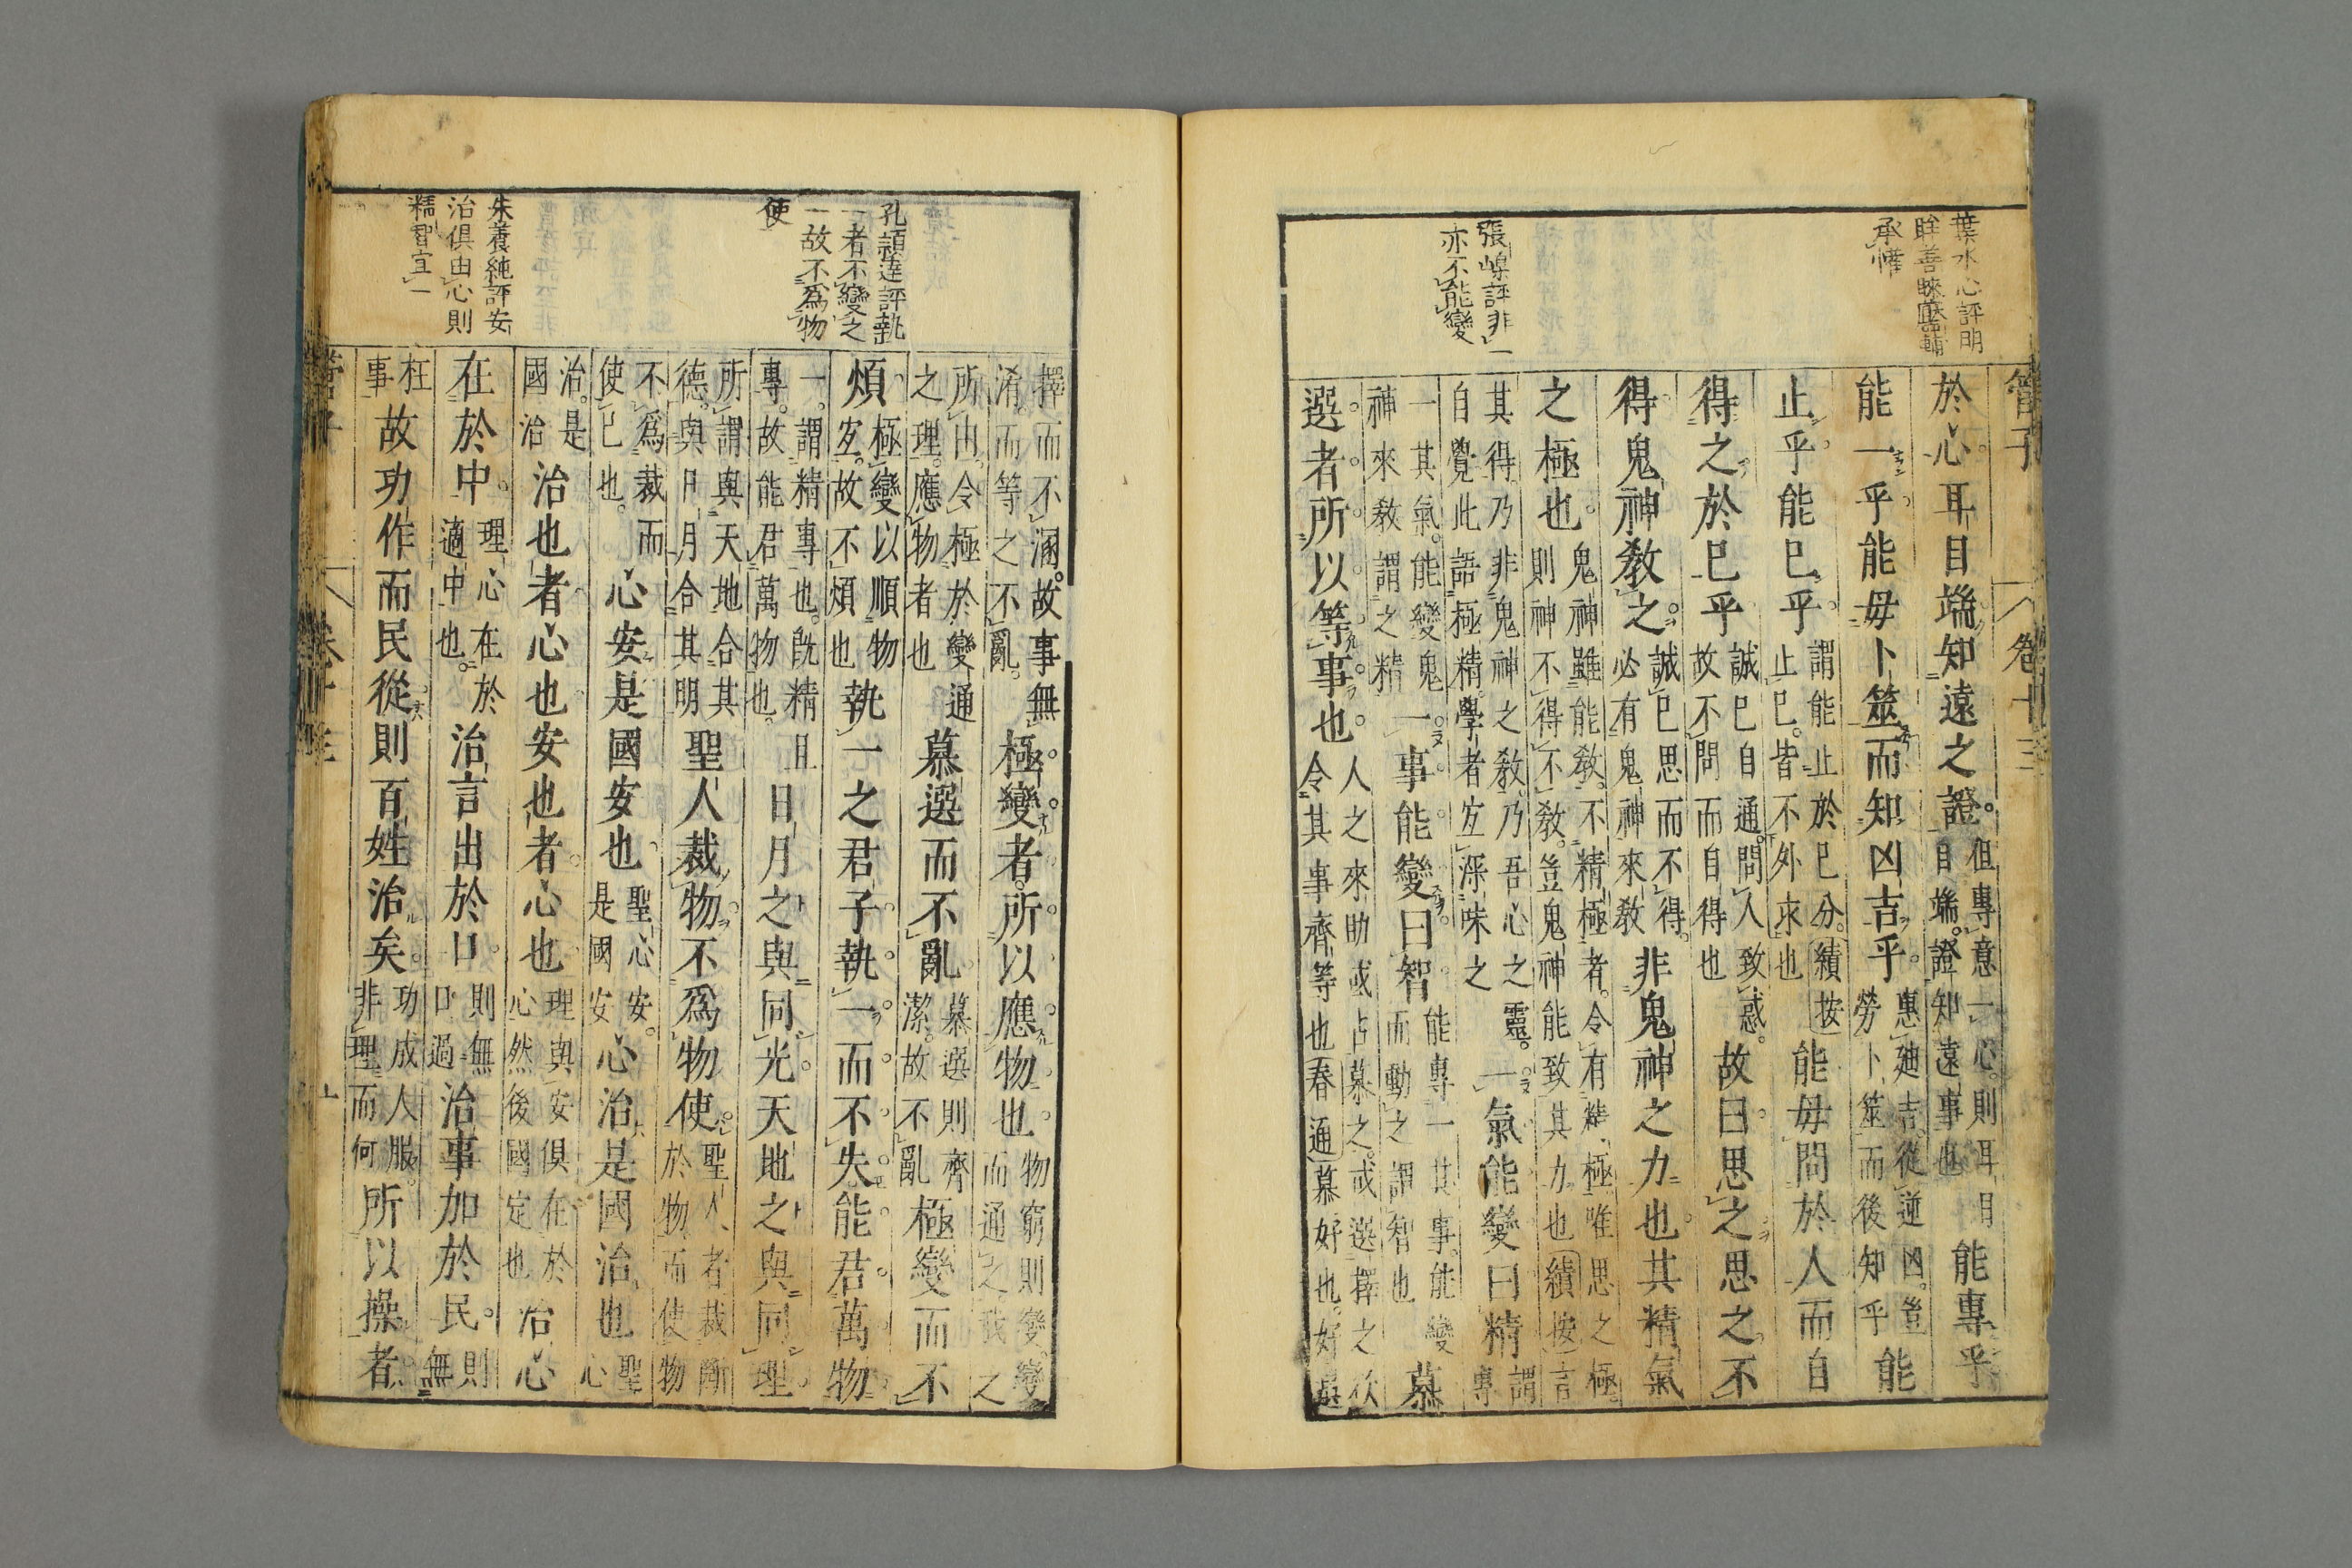 管子　卷十三
葉水心評明
眸善睞靨輔
承權
於心耳目端知遠之證但專意一心則耳目自端證知遠事也能專乎
能一乎能毋卜筮而知凶吉乎惠廸吉從逆凶豈勞卜筮而後知乎能
止乎能已乎謂能止於已分止已皆不外求也續按能毋問於人而自
得之於已乎誠已自通問人致惑故不問而自得也故曰思之思之不
得鬼神教之誠已思而不得必有鬼神來教非鬼神之力也其精氣
之極也鬼神雖能教不精極者令有精極唯思之極則神不得不教豈鬼神能致其力也續按言
其得乃非鬼神之教乃吾心之靈自覺此語極精學者宜深味之一氣能變曰精謂專
一其氣能變鬼神來教謂之精一事能變曰智能專一其事能變而動之謂智也慕
選者所以等事也人之來助或占慕之或選擇之欲令其事齊等也春通慕好也好選
張嵲評非一
亦不能變
擇而不溷故事無淆而等之不亂極變者所以應物也物窮則變變而通之我之
所由令極於變通之理應物者也慕選而不亂慕選則齊潔故不亂極變而不
煩極變以順物宜故不煩也執一之君子執一而不失能君萬物
一謂精專也旣精且專故能君萬物也日月之與同光天地之與同理
所謂與天地合其德與日月合其明聖人裁物不爲物使聖人者裁斷於物而使物
不爲裁而使已也心安是國安也聖心安是國安心治是國治也聖心
治是國治治也者心也安也者心也理與安俱在於心然後國定也治心
在於中理心在於適中也治言出於口則無口過治事加於民則無
枉事故功作而民從則百姓治矣功成人服非理而何所以操者
孔頴達評執
一者不變之
一故不爲物
使
朱養純評安
治俱由心則
精智宜一
管子　卷十三　上